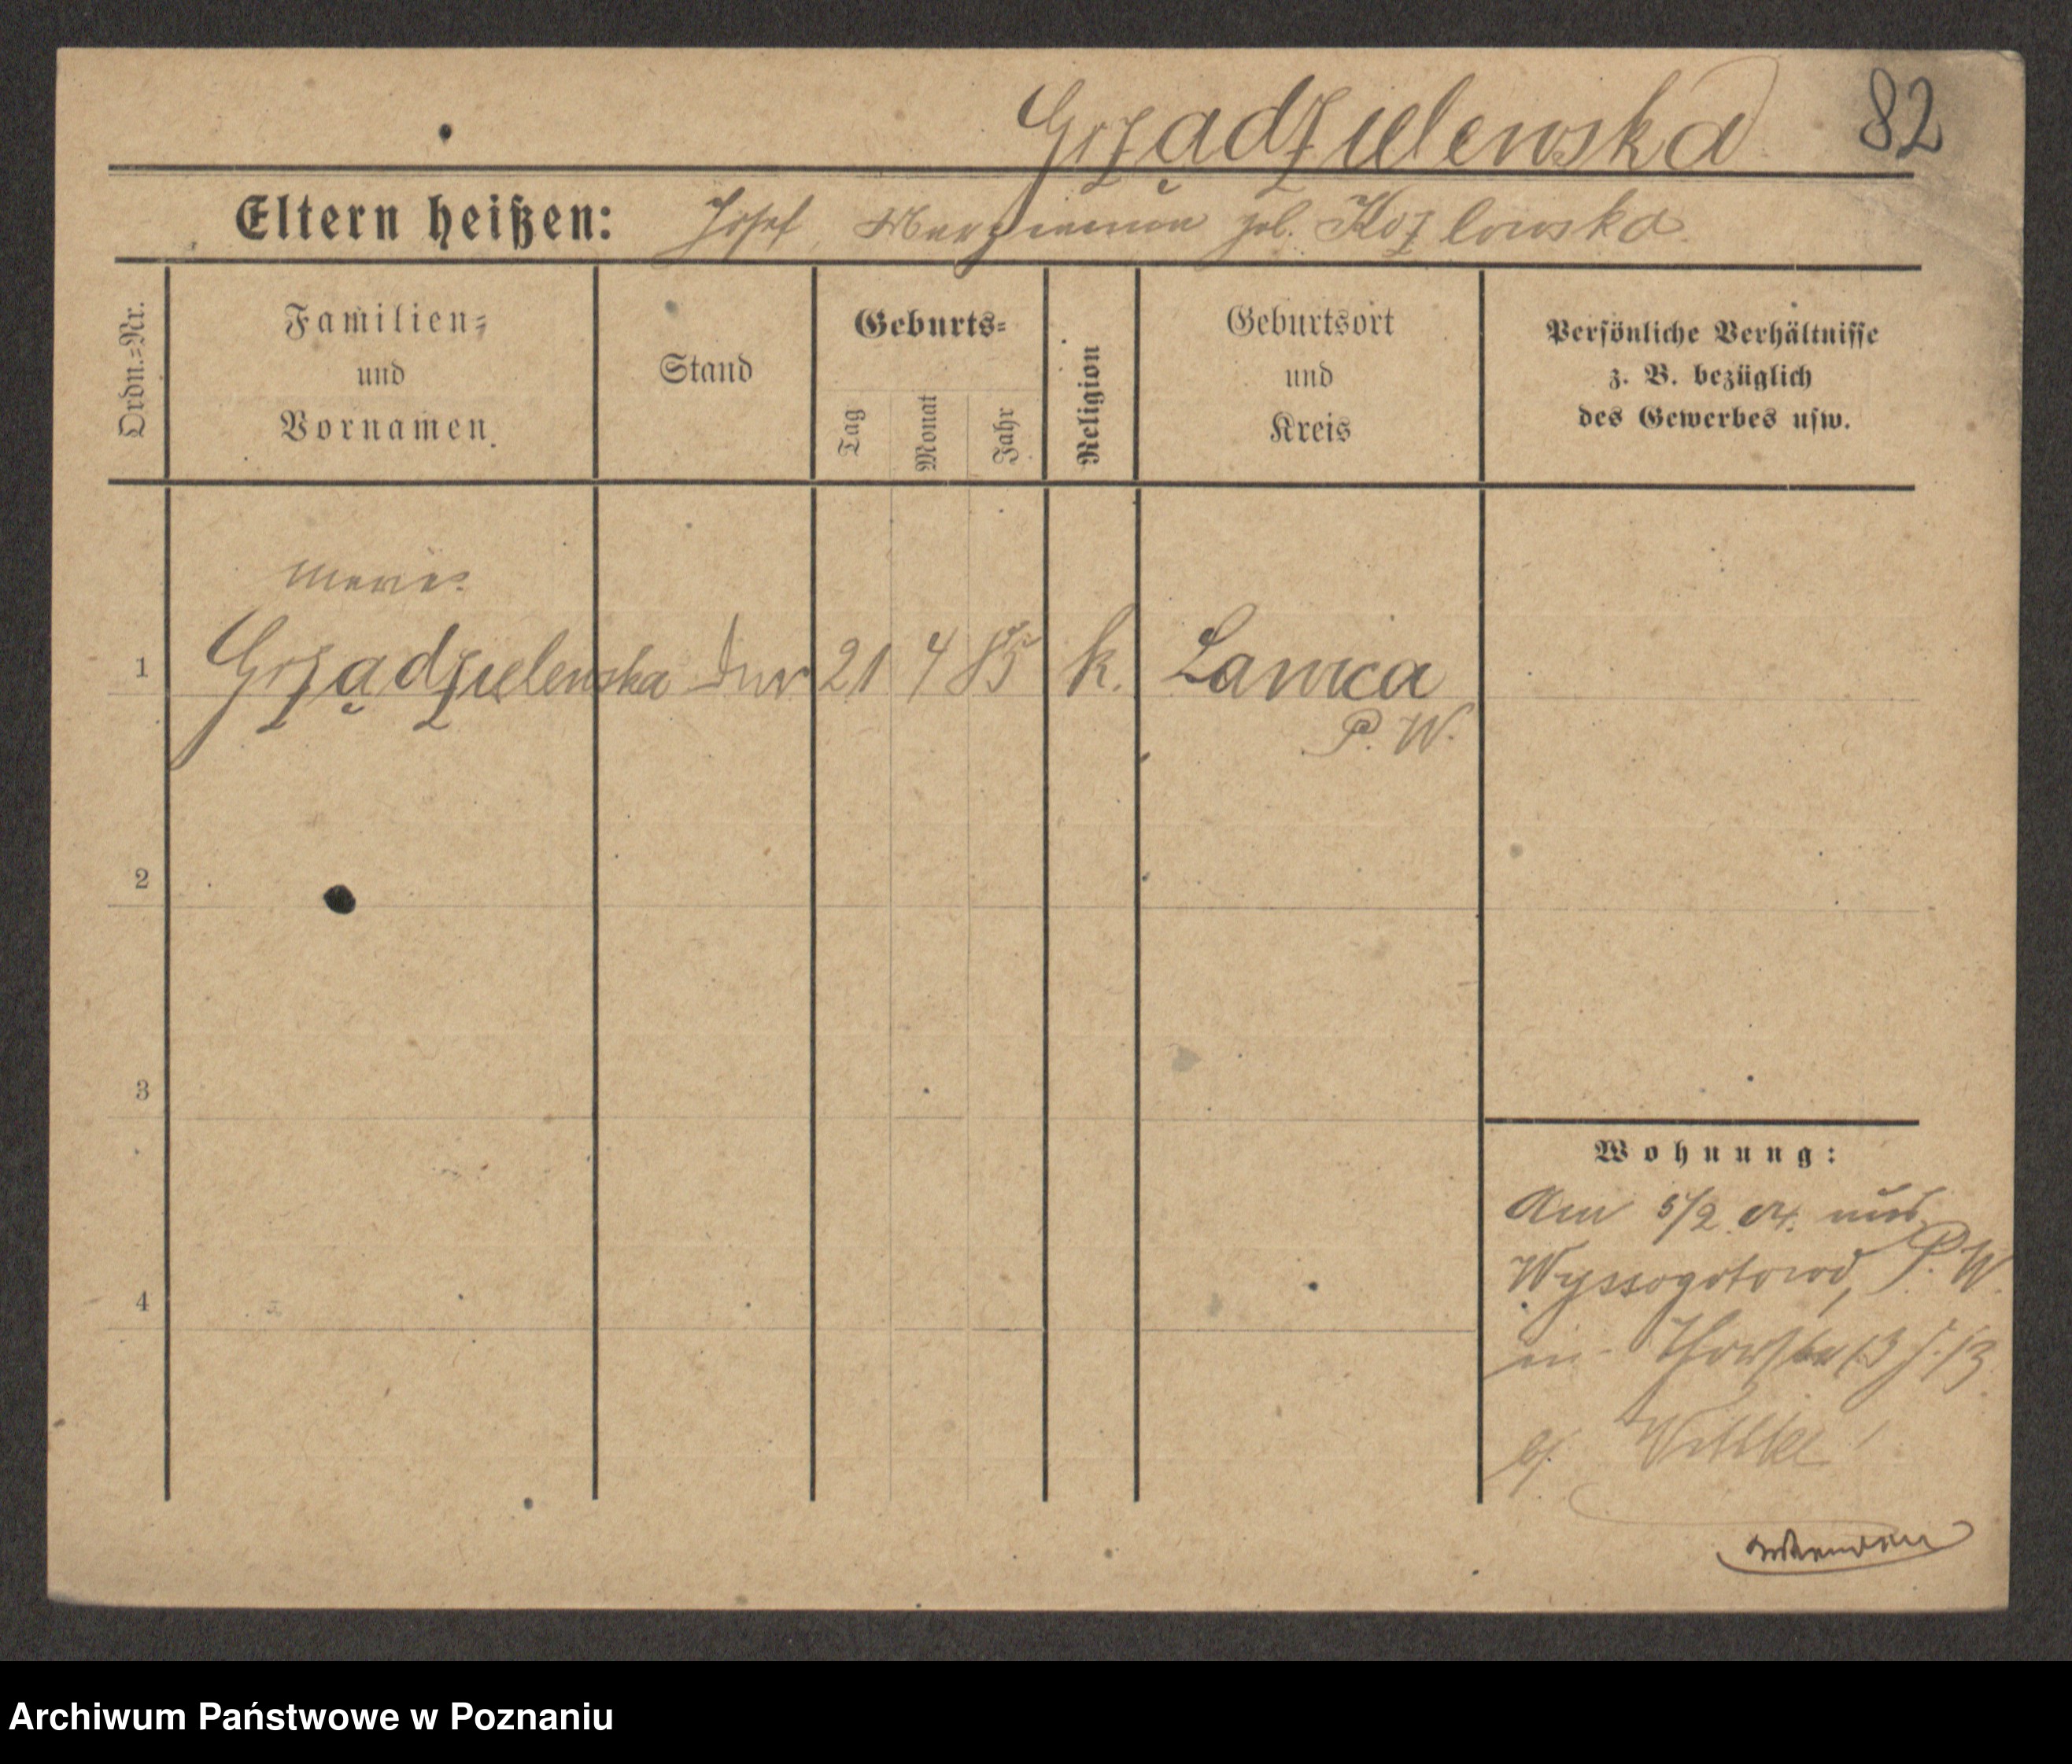 Grządzielewska 82
Eltern heißen: Josef, Marzianna geb. Kozlowska
Ordn.=Nr. Familien= und Vornamen. Stand Geburts= Tag Monat Jahr Religion Geburtsort und Kreis Persönliche Verhältnisse z. B. bezüglich des Gewerbes usw.
Marie
1 Grządzielewska 21 4 85 k. Lawica
P. W.
2
3
Wohnung:
Am 5/2 04. aus
Wyssogotowo, P. W.
4
in
b/.
Archiwum Państwowe w Poznaniu